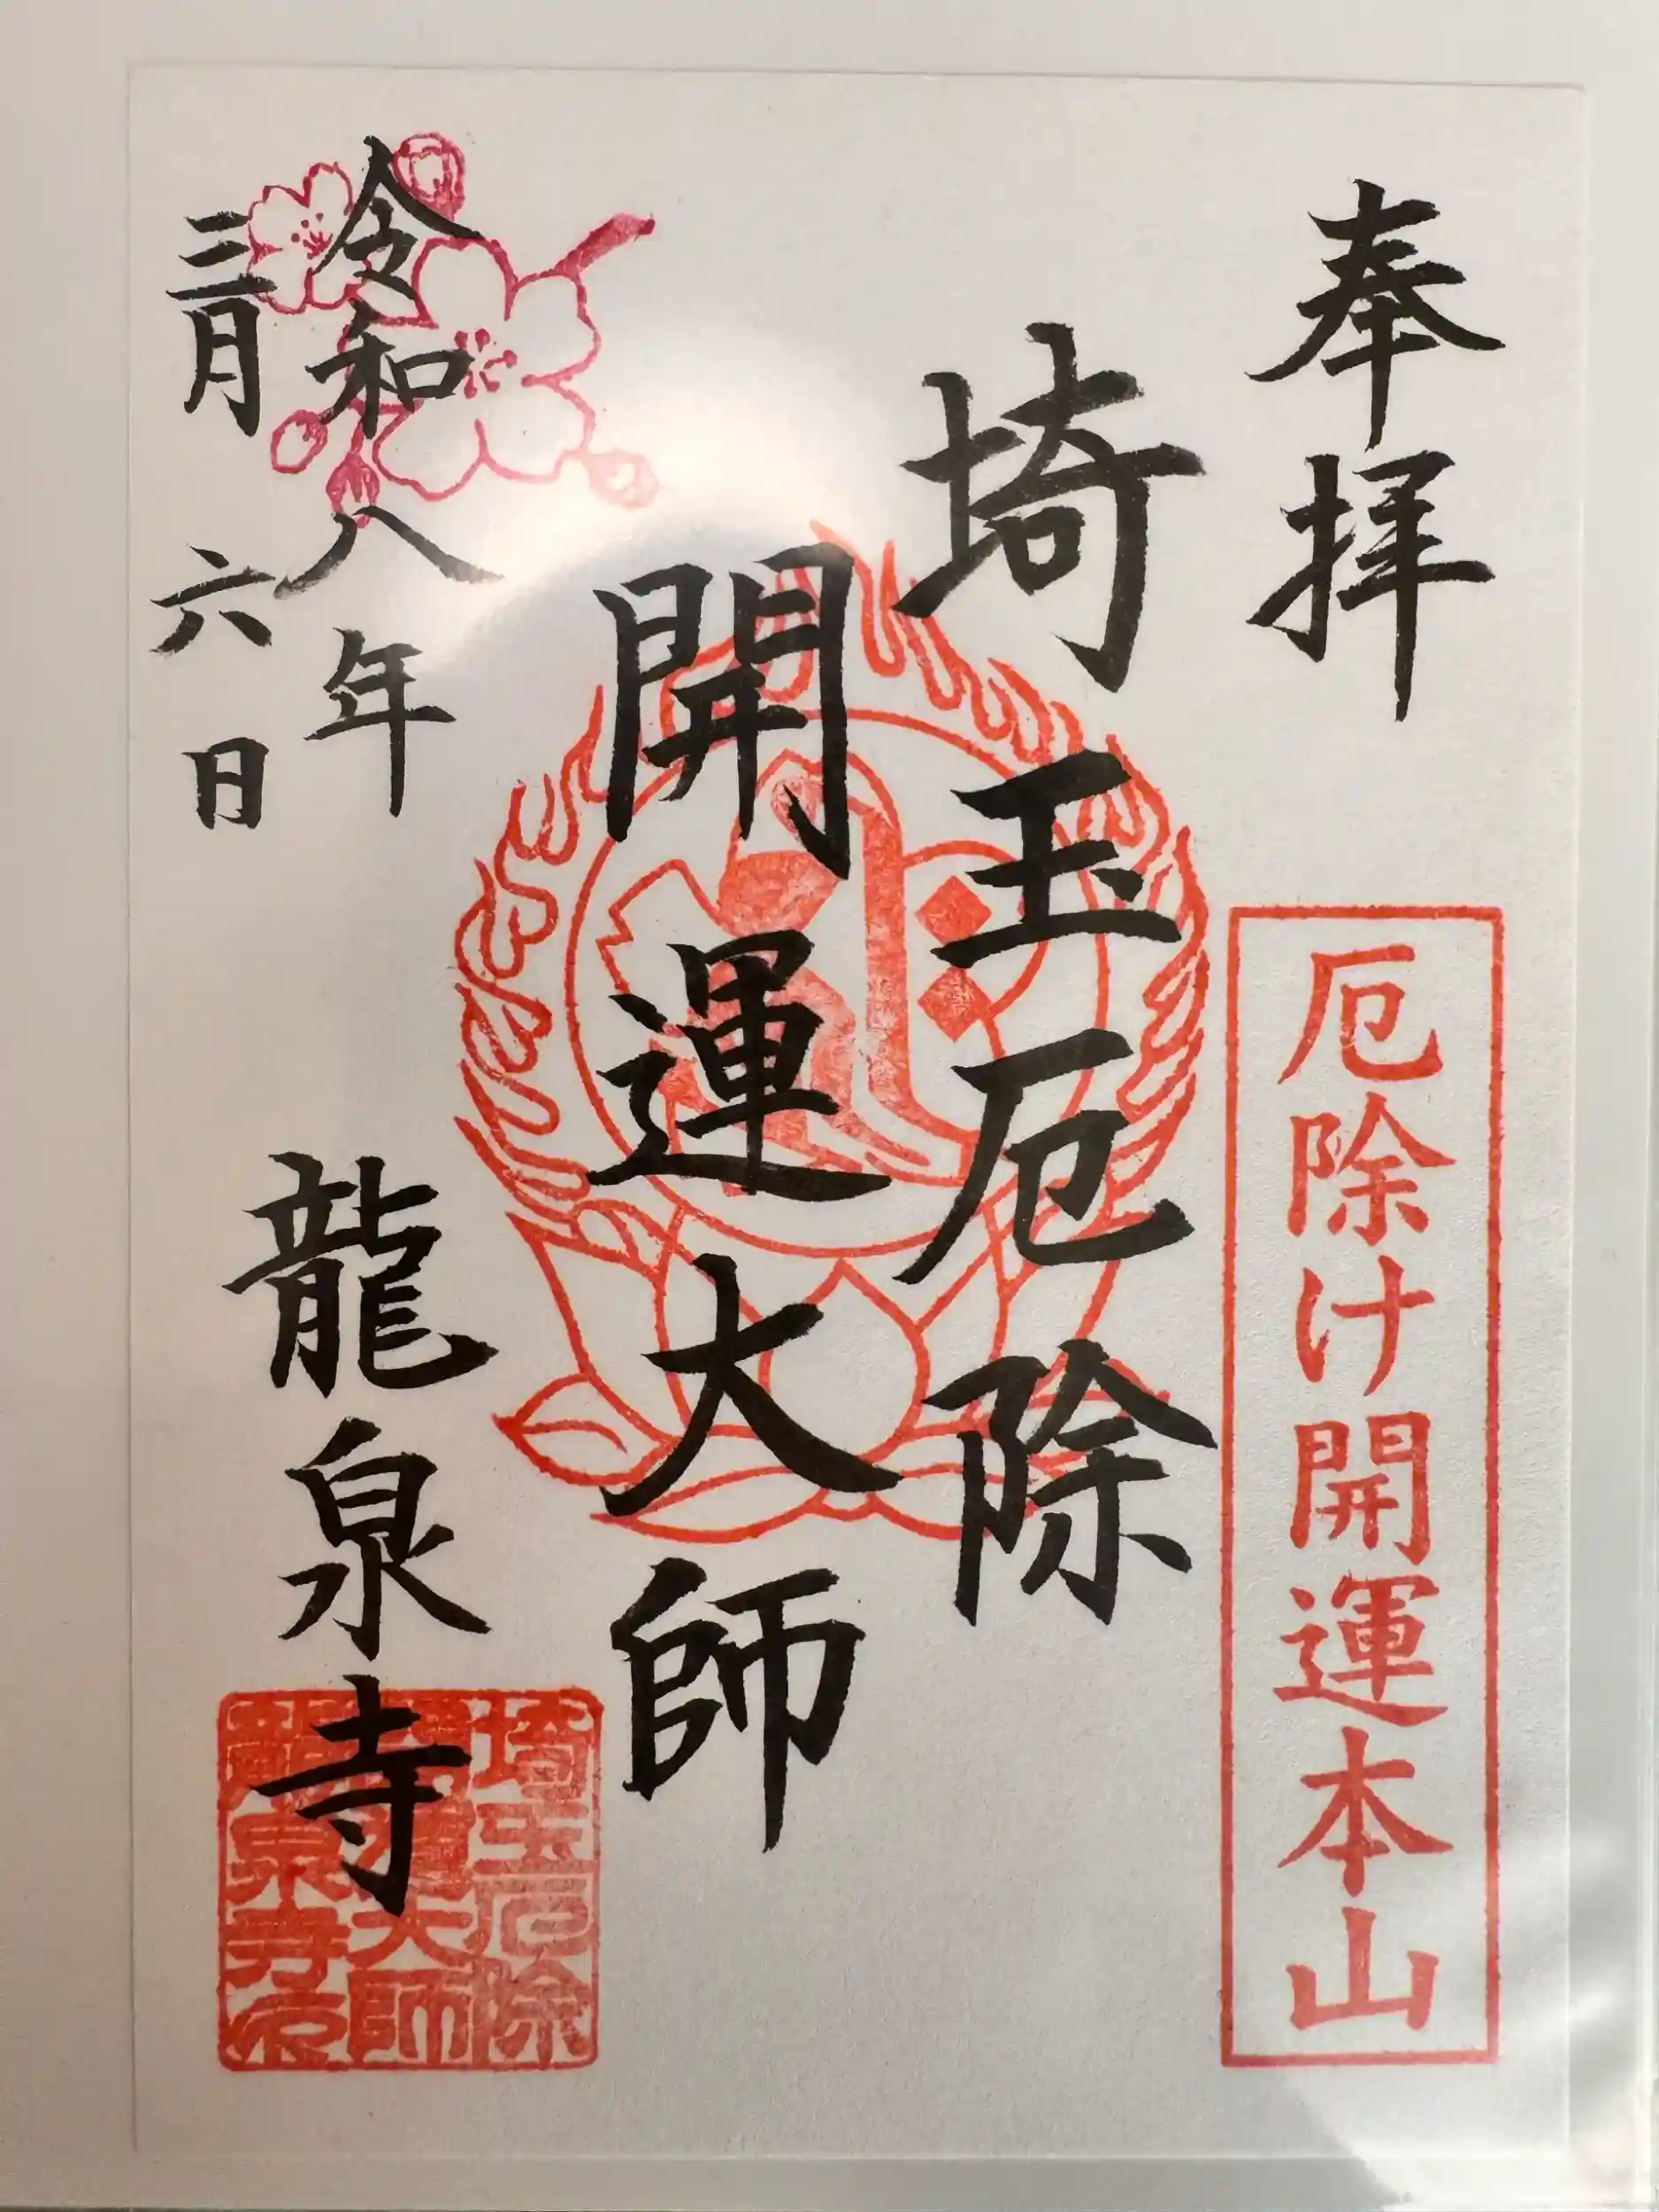 奉拝
厄除け開運本山
埼玉厄除
開運大師
令和八年
三月六日
龍泉寺
埼玉厄除